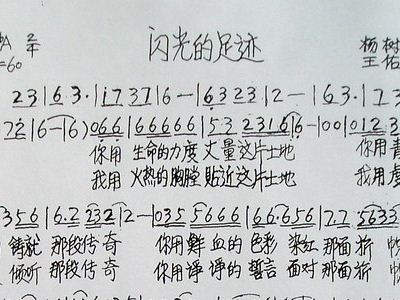 2/4 闪光的足迹 杨树
=60 王佑
2 3 | 6 3 · | 1 7 3 7 | 6 — | 6 3 2 3 | 2 — | 6 3 · | 7 3
7 2 | 6 — | 6 — ) 0 6 6 | 6 6 6 6 6 | 5 3 2 3 1 6 | 6 — | 0 0 | 0 1 2 3
你用 生命的力度 丈量这片土地 你用
我用 火热的胸膛 贴近这片土地 我用
3 5 6 | 6 · 2 2 3 2 | 2 — | 0 3 5 5 6 6 6 | 6 6 6 5 6 | 7 7 5 6 3 3
铸就 那段传奇 你用鲜血的色彩 染红那面折
倾听 那段传奇 你用铮铮的誓言 面对那面折